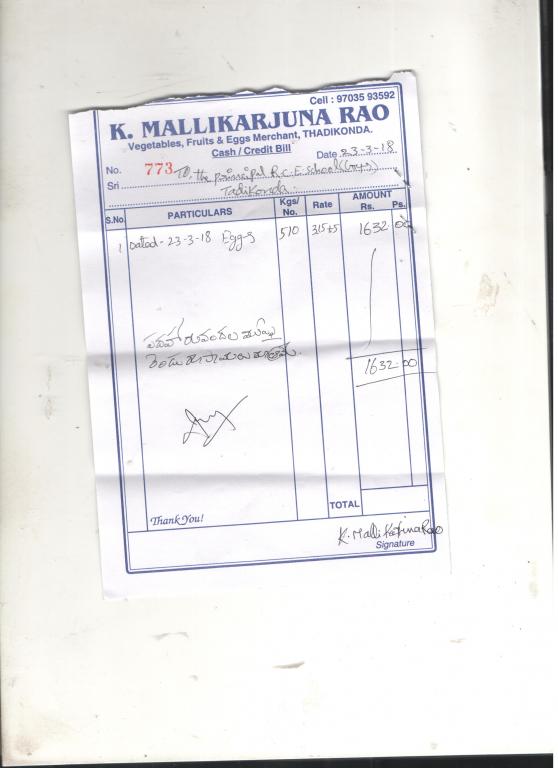 Cell : 97035 93592
K. MALLIKARJUNA RAO
Vegetables, Fruits & Eggs Merchant, THADIKONDA.
Cash / Credit Bill
No. 773 Date 23-3-18
Sri To, the prinssipal R.C.E. School (Boys)
Tadikonda
S.No. PARTICULARS Kgs/ No. Rate AMOUNT Rs. Ps.
1 Dated - 23-3-18 Eggs 510 315+5 1632 00
పదహారువందల ముప్పై
రెండు రూపాయలు మాత్రమే.
1632-00
TOTAL
Thank You!
K. Mallikarjuna Rao
Signature